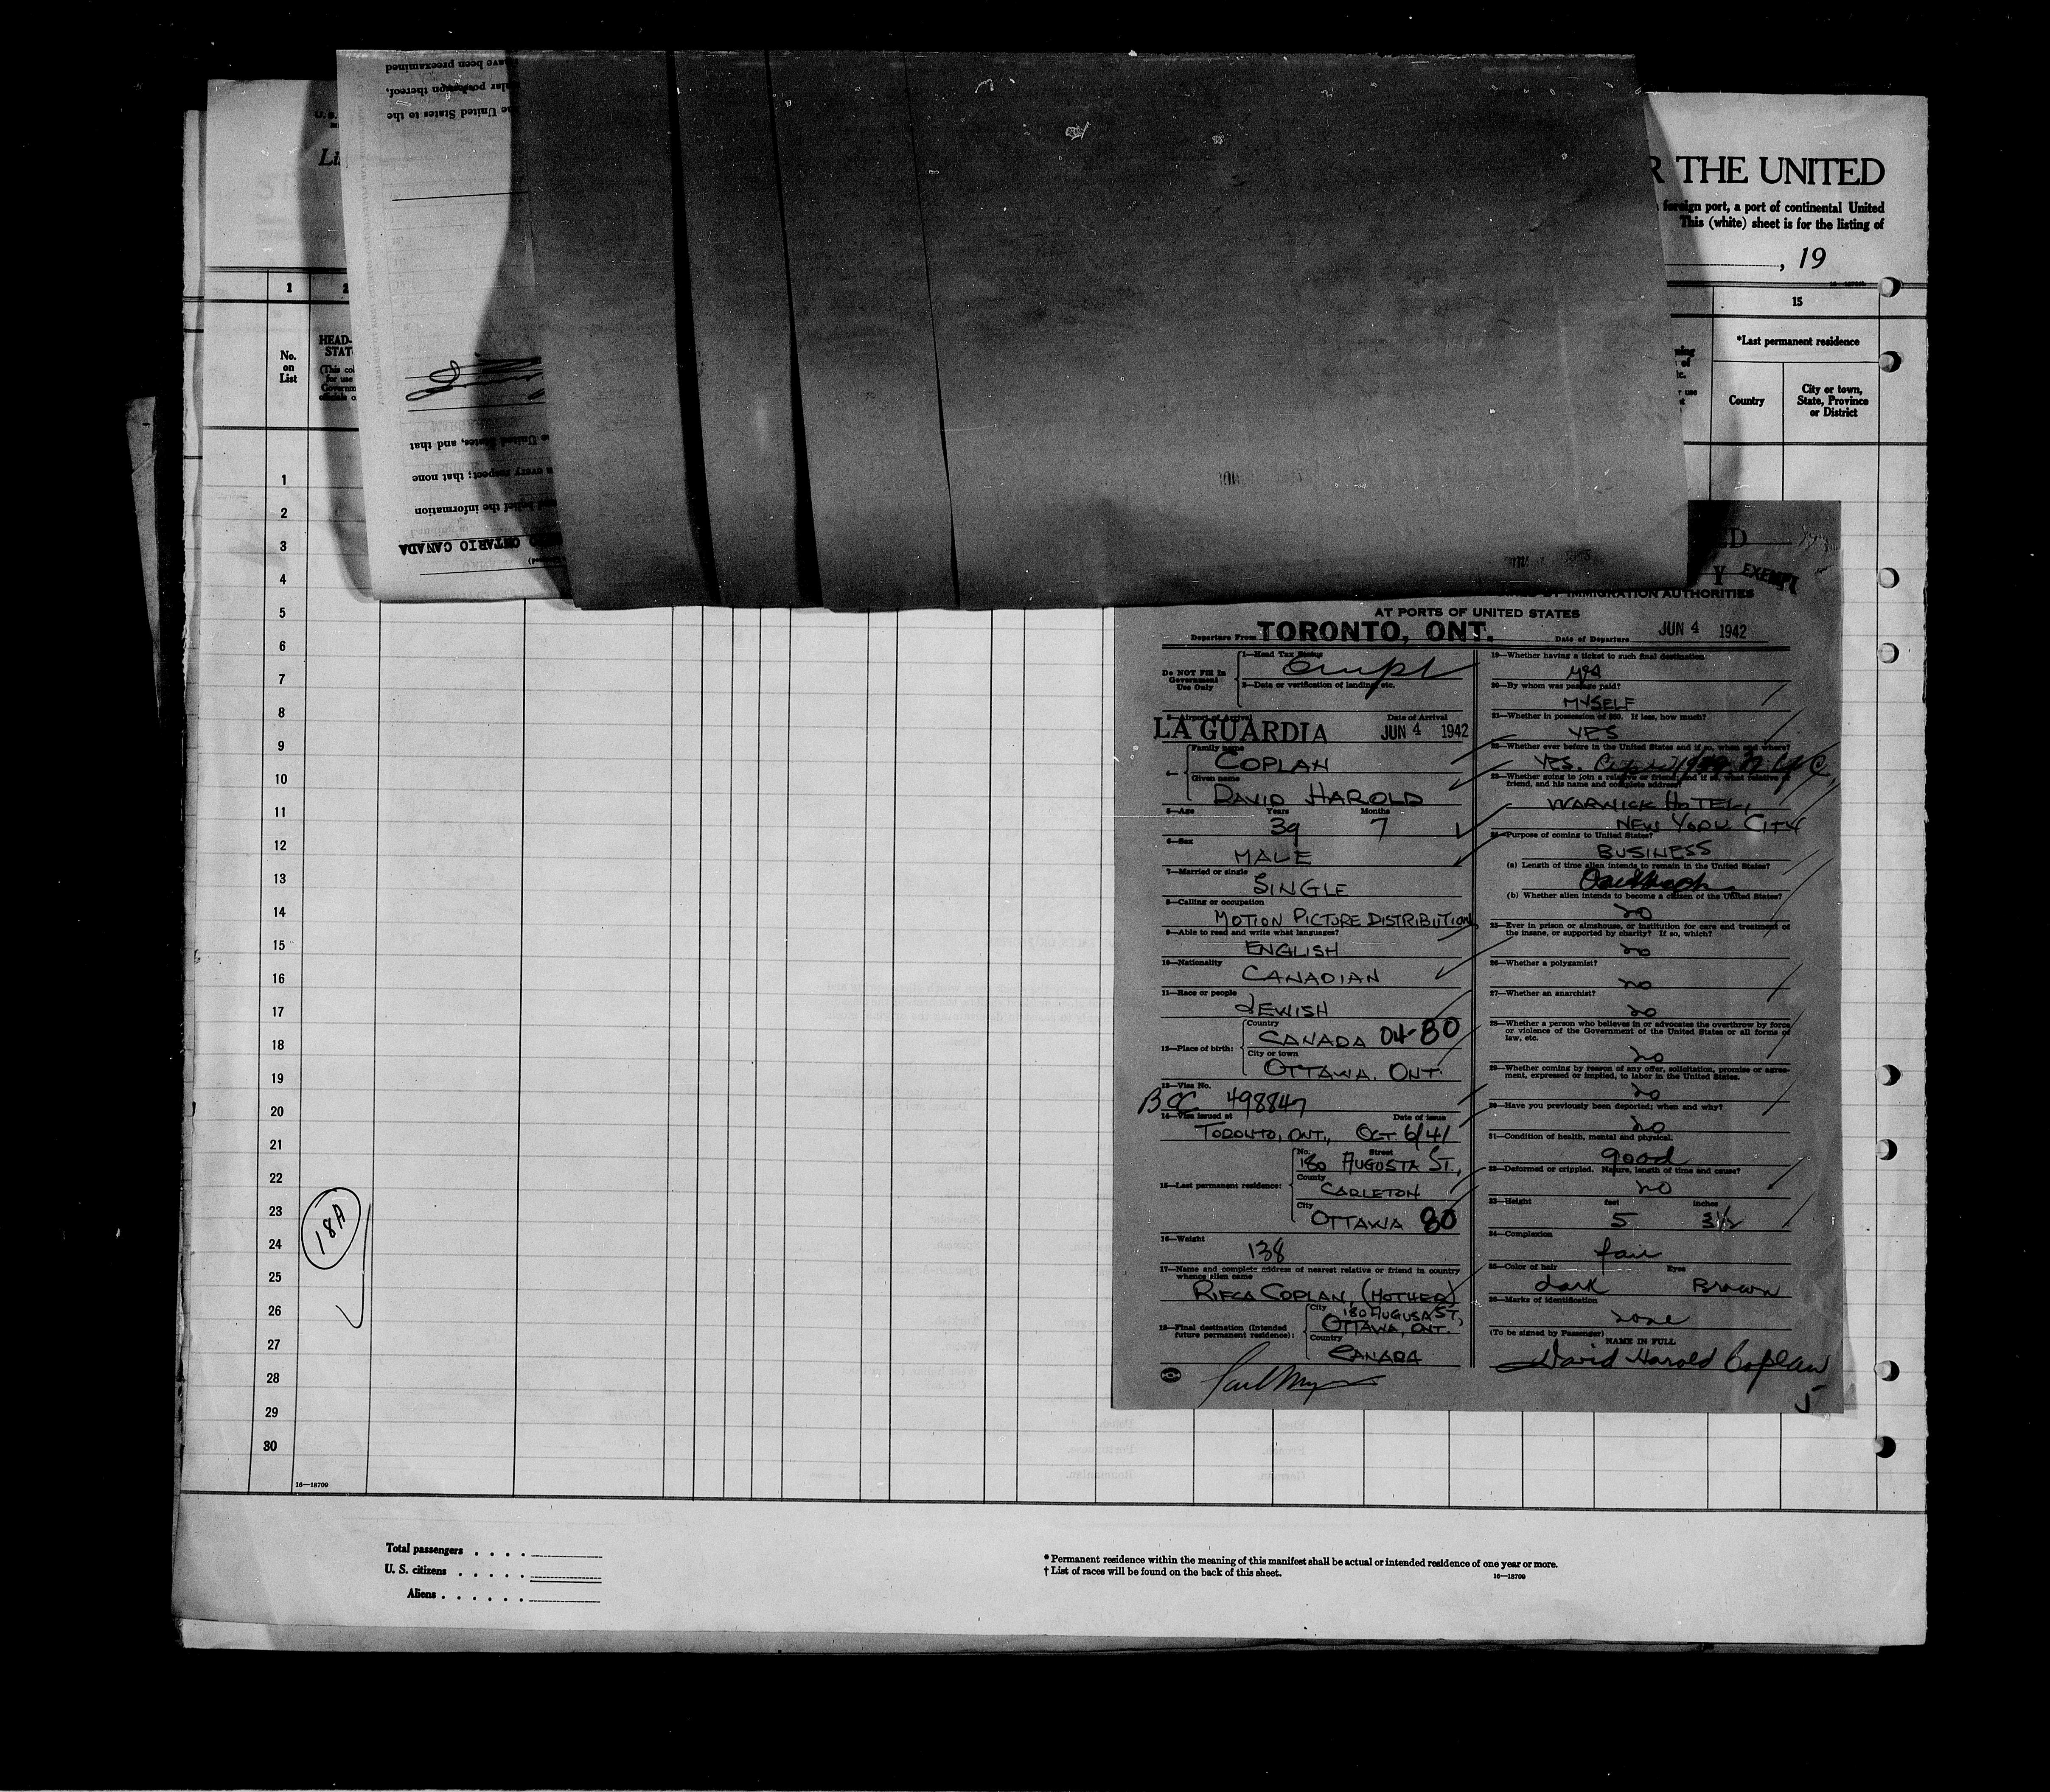 R THE UNITED
foreign port, a port of continental United
This (white) sheet is for the listing of
, 19
1
15
No.
on
List
HEAD-
STAT
*Last permanent residence
Country
City or town,
State, Province
or District
have been preexamined
thereof,
United States to the
United States, and that
every respect; that none
belief the information
ONTARIO CANADA
1
2
3
4
5
6
7
8
9
10
11
12
13
14
15
16
17
18
19
20
21
22
23
24
25
26
27
28
29
30
18A
16—18709
EXEMPT
BY IMMIGRATION AUTHORITIES
AT PORTS OF UNITED STATES
Departure From TORONTO, ONT. Date of Departure JUN 4 1942
Do NOT Fill In
Government
Use Only
1—Head Tax Status
2—Data or verification of landing, etc.
3—Airport of Arrival Date of Arrival
LA GUARDIA JUN 4 1942
4— Family name
COPLAN
Given name
DAVID HAROLD
5—Age Years Months
39 7
6—Sex
MALE
7—Married or single
SINGLE
8—Calling or occupation
MOTION PICTURE DISTRIBUTION
9—Able to read and write what languages?
ENGLISH
10—Nationality
CANADIAN
11—Race or people
JEWISH
12—Place of birth:
Country
CANADA 04-80
City or town
OTTAWA. ONT.
13—Visa No.
BCC 498847
14—Visa issued at Date of issue
TORONTO, ONT., OCT 6/41
15—Last permanent residence:
No. Street
180 AUGUSTA ST.,
County
CARLETON
City
OTTAWA 80
16—Weight
138
17—Name and complete address of nearest relative or friend in country
whence alien came
RIFCA COPLAN, (MOTHER)
180 AUGUSA ST,
18—Final destination (Intended
future permanent residence):
City
OTTAWA, ONT.
Country
CANADA
19—Whether having a ticket to such final destination
yes
20—By whom was passage paid?
MYSELF
21—Whether in possession of $50. If less, how much?
YES
22—Whether ever before in the United States and if so, when and where?
YES.
23—Whether going to join a relative or friend; and if so, what relative or
friend, and his name and complete address?
WARWICK HOTEL,
NEW YORK CITY
24—Purpose of coming to United States?
BUSINESS
(a) Length of time alien intends to remain in the United States?
(b) Whether alien intends to become a citizen of the United States?
no
25—Ever in prison or almshouse, or institution for care and treatment of
the insane, or supported by charity? If so, which?
no
26—Whether a polygamist?
no
27—Whether an anarchist?
no
28—Whether a person who believes in or advocates the overthrow by force
or violence of the Government of the United States or all forms of
law, etc.
no
29—Whether coming by reason of any offer, solicitation, promise or agree-
ment, expressed or implied, to labor in the United States.
no
30—Have you previously been deported; when and why?
no
31—Condition of health, mental and physical.
good
32—Deformed or crippled. Nature, length of time and cause?
no
33—Height feet inches
5 3½
34—Complexion
fair
35—Color of hair Eyes
dark Brown
36—Marks of identification
none
(To be signed by Passenger)
NAME IN FULL
David Harold Coplan
Total passengers . . . .
U. S. citizens . . . . .
Aliens . . . . . .
* Permanent residence within the meaning of this manifest shall be actual or intended residence of one year or more.
† List of races will be found on the back of this sheet.
16—18709